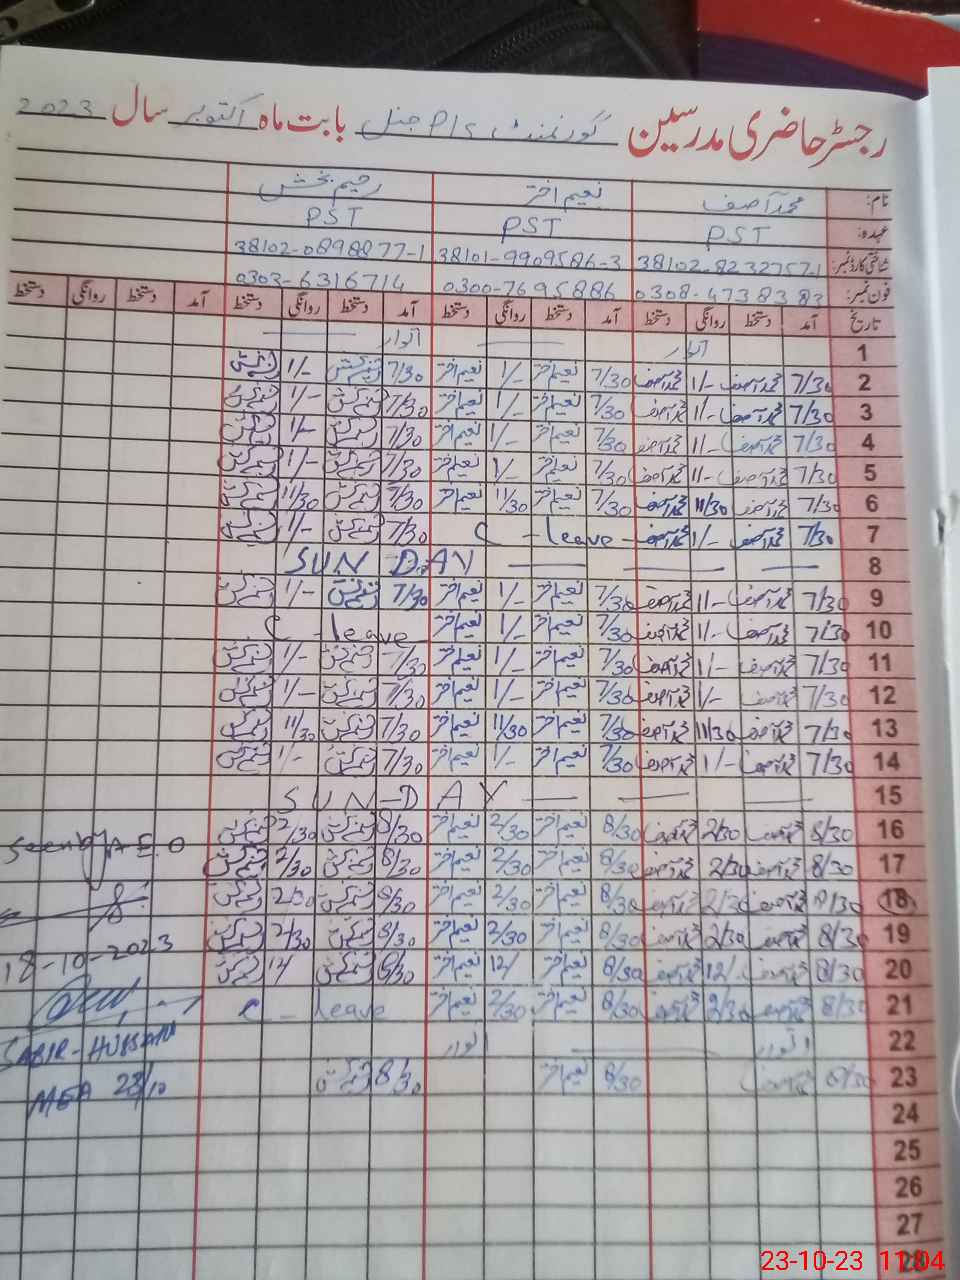 رجسٹر حاضری مدرسین گورنمنٹ P/S جنل بابت ماہ اکتوبر سال 2023
نام: محمد آصف نعیم اختر رحیم بخش
عہدہ: PST PST PST
شناختی کارڈ نمبر: 38102-8232757-1 38101-9909586-3 38102-0898877-1
فون نمبر: 0308-4738383 0300-7695886 0303-6316714
تاریخ آمد دستخط روانگی دستخط آمد دستخط روانگی دستخط آمد دستخط روانگی دستخط آمد دستخط روانگی دستخط
1 اتوار اتوار
2 7/30 محمد آصف 1/- محمد آصف 7/30 نعیم اختر 1/- نعیم اختر 7/30 1/-
3 7/30 محمد آصف 1/- محمد آصف 7/30 نعیم اختر 1/- نعیم اختر 7/30 1/-
4 7/30 محمد آصف 1/- محمد آصف 7/30 نعیم اختر 1/- نعیم اختر 7/30 1/-
5 7/30 محمد آصف 1/- محمد آصف 7/30 نعیم اختر 1/- نعیم اختر 7/30 1/-
6 7/30 محمد آصف 11/30 محمد آصف 7/30 نعیم اختر 11/30 نعیم اختر 7/30 11/30
7 7/30 محمد آصف 1/- محمد آصف C - leave 7/30 1/-
8 SUNDAY
9 7/30 محمد آصف 1/- محمد آصف 7/30 نعیم اختر 1/- نعیم اختر 7/30 1/-
10 7/30 محمد آصف 1/- محمد آصف 7/30 نعیم اختر 1/- نعیم اختر C - leave
11 7/30 محمد آصف 1/- محمد آصف 7/30 نعیم اختر 1/- نعیم اختر 7/30 1/-
12 7/30 محمد آصف 1/- محمد آصف 7/30 نعیم اختر 1/- نعیم اختر 7/30 1/-
13 7/30 محمد آصف 11/30 محمد آصف 7/30 نعیم اختر 11/30 نعیم اختر 7/30 11/30
14 7/30 محمد آصف 1/- محمد آصف 7/30 نعیم اختر 1/- نعیم اختر 7/30 1/-
15 SUN-DAY
16 8/30 محمد آصف 2/30 محمد آصف 8/30 نعیم اختر 2/30 نعیم اختر 8/30 2/30
Seen by A.E.O
17 8/30 محمد آصف 2/30 محمد آصف 8/30 نعیم اختر 2/30 نعیم اختر 8/30 2/30
18 8/30 محمد آصف 2/30 محمد آصف 8/30 نعیم اختر 2/30 نعیم اختر 8/30 2/30
19 8/30 محمد آصف 2/30 محمد آصف 8/30 نعیم اختر 2/30 نعیم اختر 8/30 2/30
18-10-2023
20 8/30 محمد آصف 12/- محمد آصف 8/30 نعیم اختر 12/ نعیم اختر 8/30 12/
21 8/30 محمد آصف 2/30 محمد آصف 8/30 نعیم اختر 2/30 نعیم اختر C - leave
22 اتوار اتوار
SABIR-HUSSAIN
23 8/30 محمد آصف 8/30 نعیم اختر 8/30
MEA 23/10
24
25
26
27
28
23-10-23 11:04